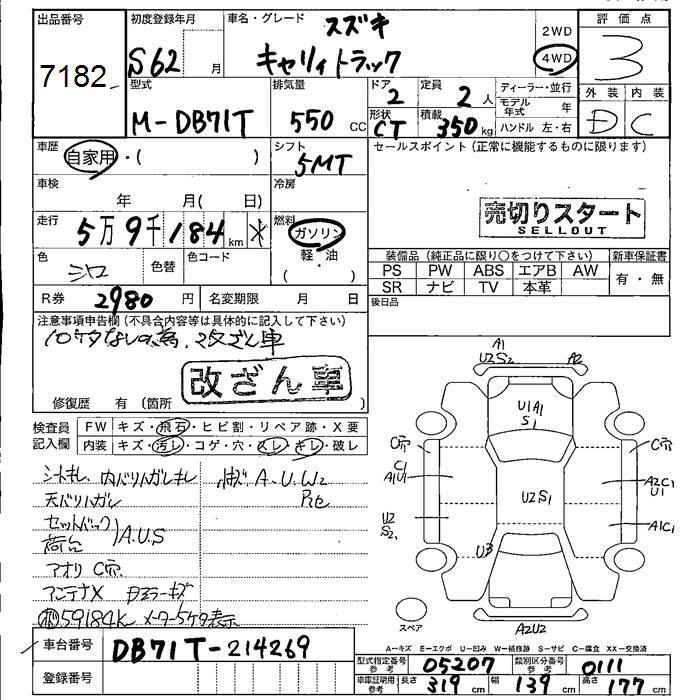 出品番号
7182
初度登録年月
S62 月
車名・グレード
スズキ
キャリィトラック
2WD
4WD
評価点
3
外装 内装
D C
型式
M-DB71T
排気量
550 CC
ドア
2
定員
2 人
形状
CT
積載
350 kg
ディーラー・並行
モデル年式 年
ハンドル 左・右
車歴
自家用・( )
シフト
5MT
セールスポイント(正常に機能するものに限ります)
車検
年 月( 日)
冷房
売切りスタート
SELLOUT
走行
5万9千184 km
燃料
ガソリン
軽・油
( )
色
シロ
色替
色コード
装備品(純正品に限り〇をつけて下さい)
新車保証書
PS PW ABS エアB AW
SR ナビ TV 本革
有・無
R券 2980 円
名変期限 月 日
後日品
注意事項申告欄(不具合内容等は具体的に記入して下さい)
10ケタなしの為、改ざん車
改ざん車
修復歴 有(箇所
検査員記入欄
FW キズ・飛石・ヒビ割・リペア跡・X要
内装 キズ・汚レ・コゲ・穴・スレ・キレ・破レ
シートキレ 内バリハガレキレ
天バリハガレ
セットバック
荷台
A.U.S
アオリ C穴
アンテナX
59184K メーター5ケタ表示
A.U.W2
A1
U2S2
A2
U1A1
S1
C穴
C1
A1U1
U2
S2
U2S1
U3
C穴
A2C1
U1
A1C1
A2U2
スペア
A-キズ E-エクボ U-凹み W-補修跡 S-サビ C-腐食 XX-交換済
車台番号
DB71T-214269
登録番号
型式指定番号参考 05207
類別区分番号参考 0111
車庫証明用参考 長さ 319 cm 幅 139 cm 高さ 177 cm